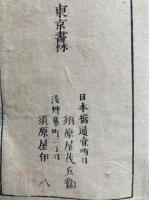 東京書林
日本橋通壹町目
須原屋茂兵衛
浅草茅町二丁目
須原屋伊八